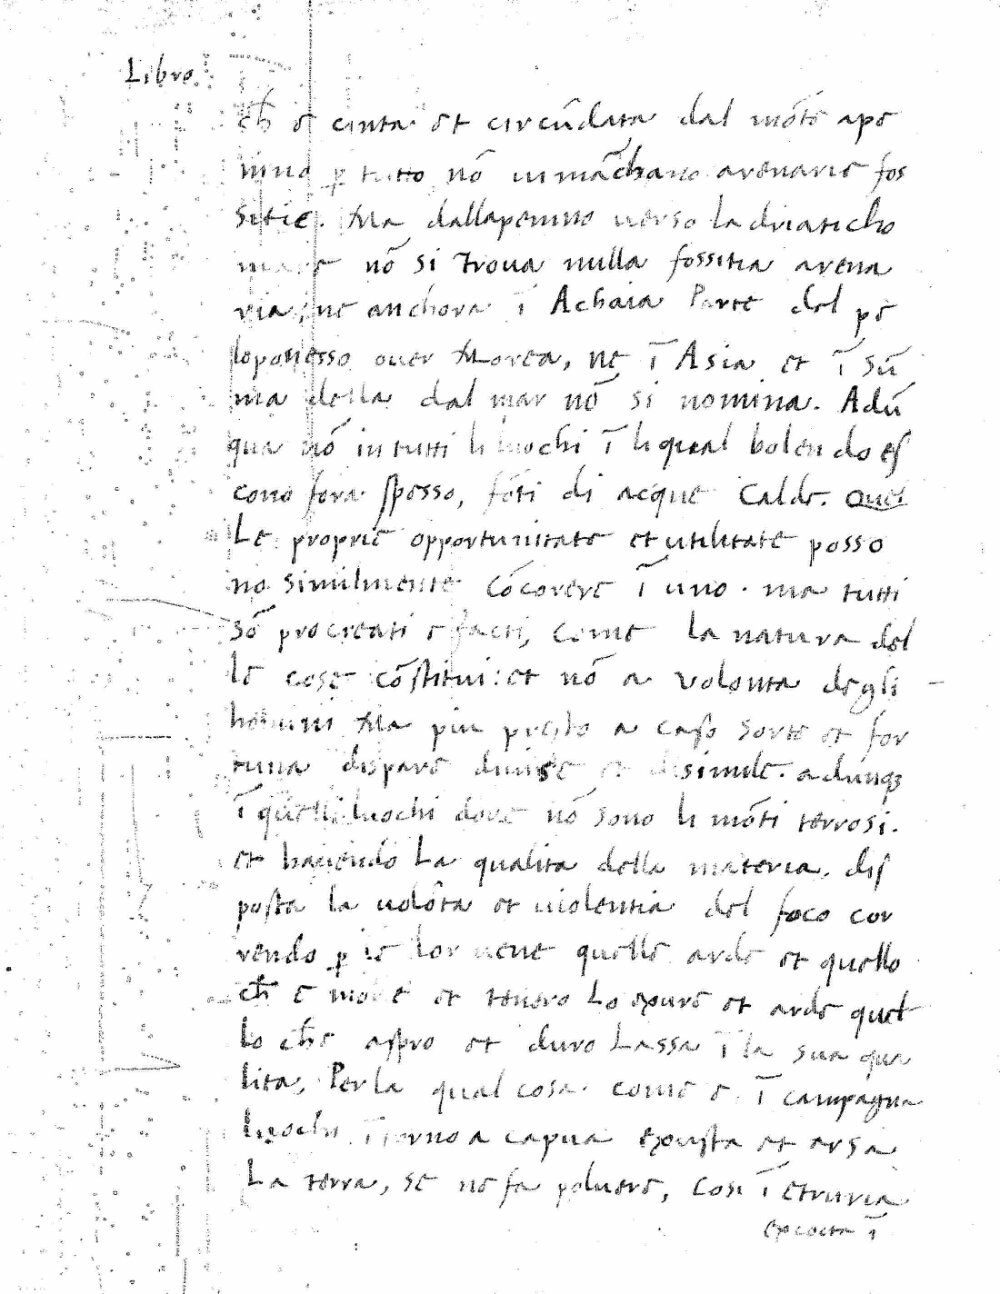 Libro
ch̄ e cinta et circūdata dal mōte ape
nino ꝑ tutto nō iui māchano arenarie fos
sitie. Ma dallapenino uerso ladriaticho
mare nō si troua nulla fossitia arena
ria, ne anchora ī Achaia Parte del pe
loponesso ouer Morea, ne ī Asia et ī sū
ma della dal mar nō si nomina. Adū
qua nō in tutti li luochi ī li qual bolendo eſ
cono fora ſpesso, fōti di acque Calde. Quel
Le proprie opportunitate et utilitate posso
no similmente cōcorere ī uno. ma tutti
sō procreati e facti, come la natura del
le cose cōſtitui: et nō a volonta degli
homini Ma piu presto a caſo sorte et for
tuna dispare diuise et disimile. adunqȝ
ī quelli luochi doue nō sono li mōti terrosi.
et hauendo La qualita della materia. diſ
poſta la uolōta et uiolentia del foco cor
rendo ꝑ le lor uene quelle arde et quello
ch̄ e molle et tenero Lo exure et arde quel
lo ch̄e aſpro et duro Lassa ī la sua qua
lita, Per la qual cosa. come e ī campagna
luochi ītorno a capua exuſta et arsa
La terra, se ne fa poluere, Cosi ī etruria
excocta ī